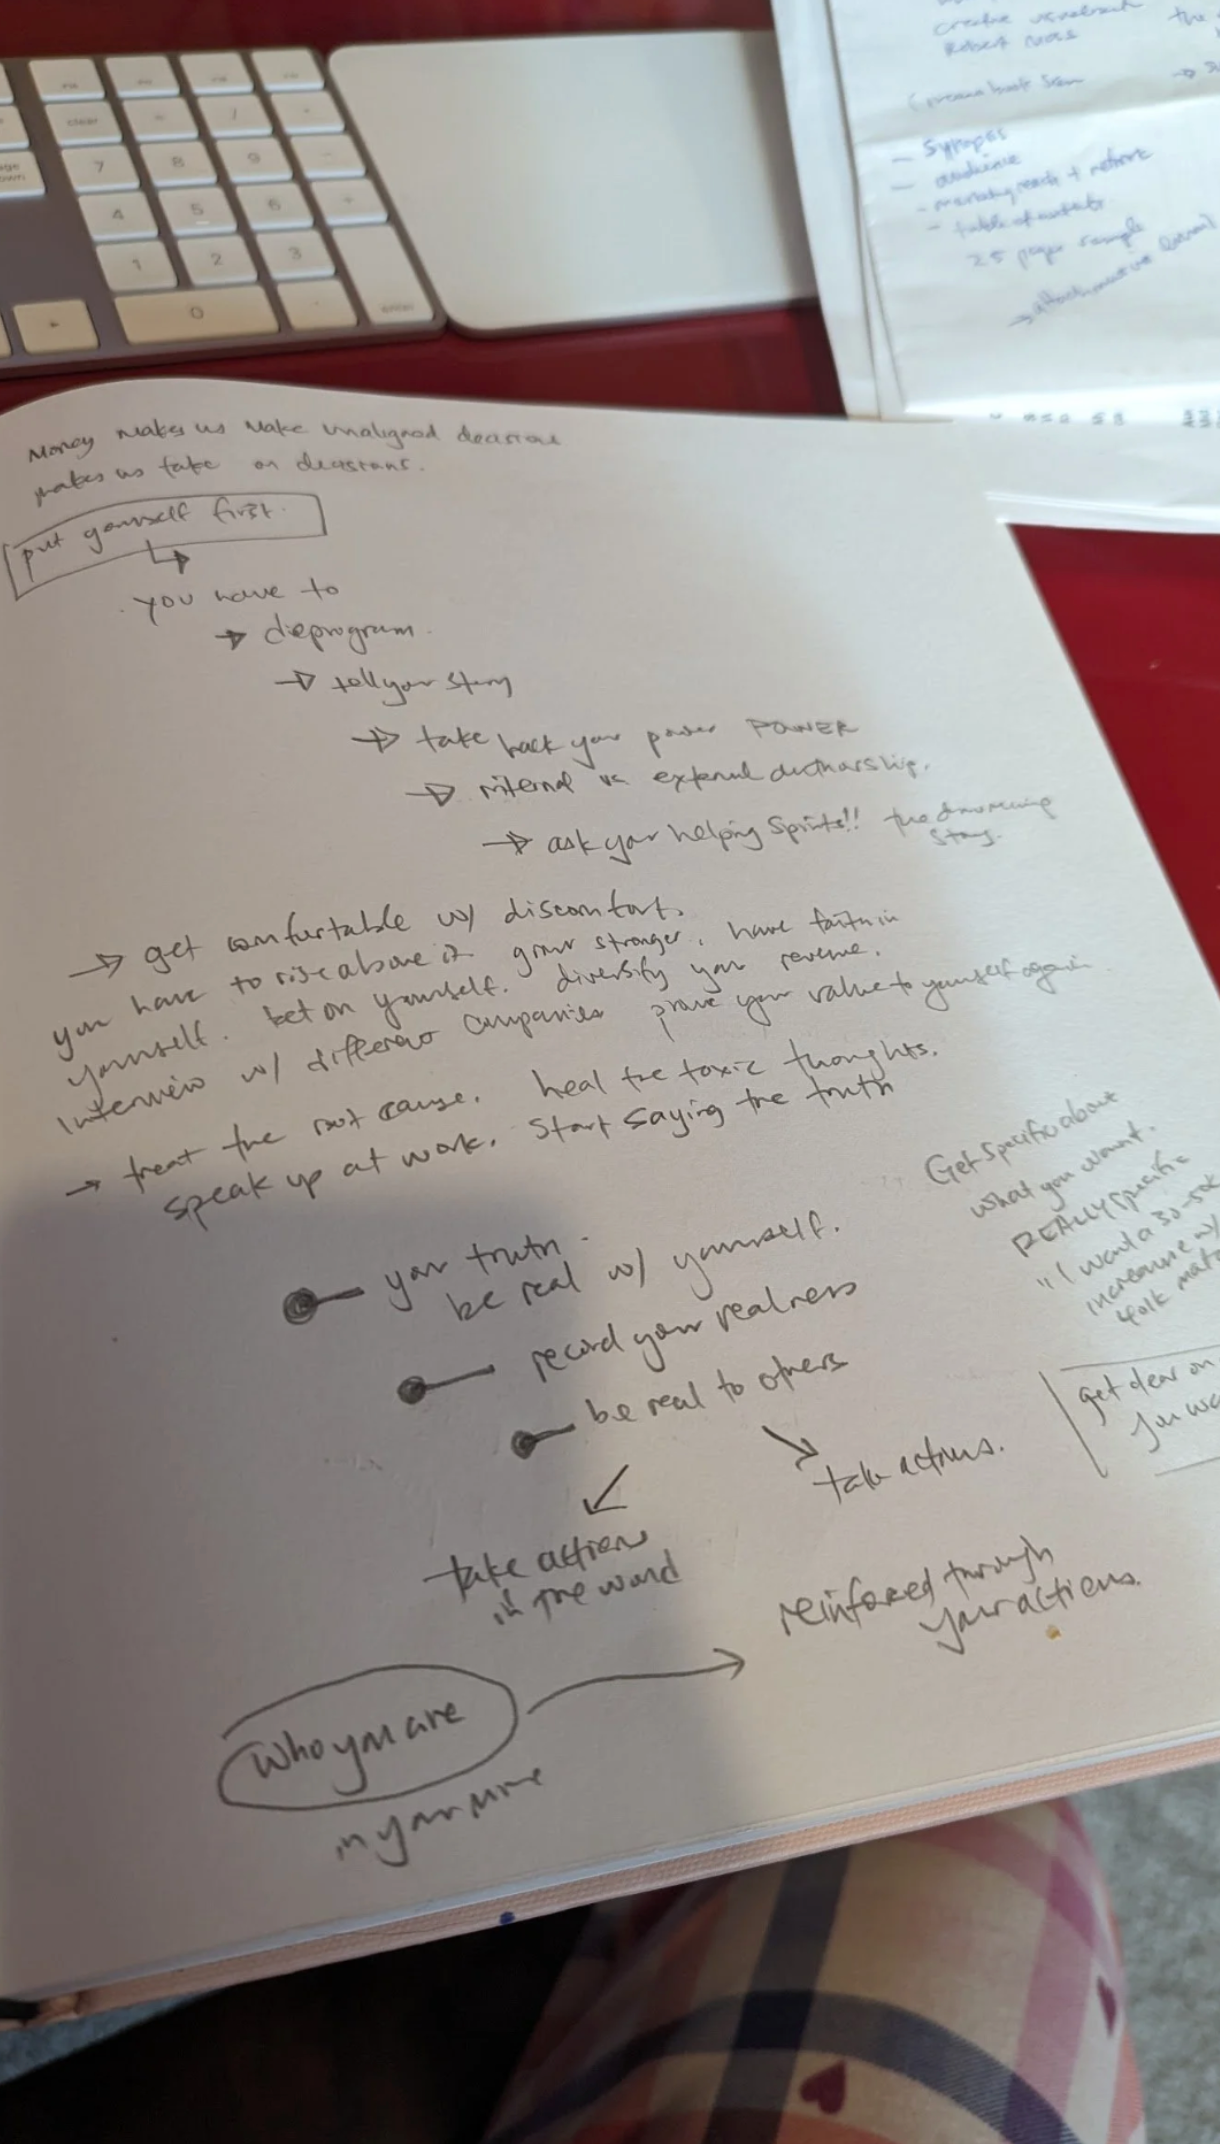 clear
=
/
7
8
9
-
4
5
6
+
1
2
3
0
.
enter
Robert Moss
- Synopsis
- audience
- marketing reach + network
- table of contents
25 page sample
Money makes us make unaligned decisions
makes us take on decisions.
put yourself first.
you have to
→ deprogram.
→ tell your story
→ take back your power POWER
→ internal vs external
→ ask your helping spirits!! the
story.
→ get comfortable w/ discomfort.
you have to rise above it grow stronger. have faith in
yourself. bet on yourself. diversify your revenue.
Interview w/ different companies prove your value to yourself again
→ treat the root cause. heal the toxic thoughts.
speak up at work. Start saying the truth
Get specific about
what you want.
REALLY specific
"I want a 30-50k
increase w/
401k mat
get clear on
you wa
your truth.
be real w/ yourself.
record your realness
be real to others
take actions.
take action
in the world
reinforced through
your actions.
who you are
in your mind